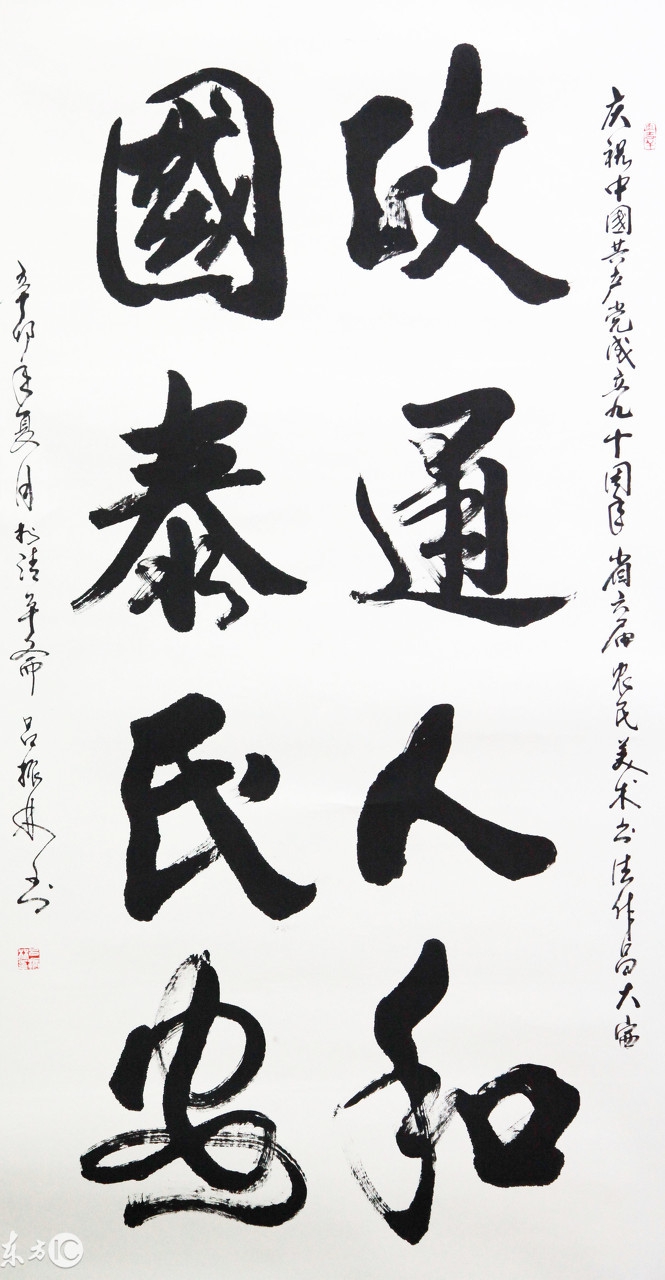 庆祝中國共产党成立九十周年省六届农民美术书法作品大赛
政通人和
國泰民安
辛卯年夏月於清平斋吕振林书
东方IC